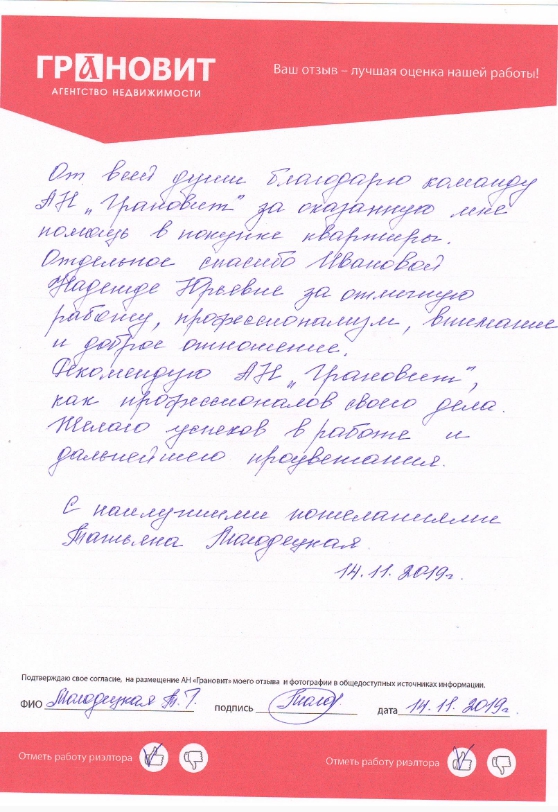 ГРАНОВИТ
АГЕНТСТВО НЕДВИЖИМОСТИ
Ваш отзыв – лучшая оценка нашей работы!
От всей души благодарю команду
АН „Грановит" за оказанную мне
помощь в покупке квартиры.
Отдельное спасибо Ивановой
Надежде Юрьевне за отличную
работу, профессионализм, внимание
и доброе отношение.
Рекомендую АН „Грановит",
как профессионалов своего дела.
Желаю успехов в работе и
дальнейшего процветания.
С наилучшими пожеланиями
Татьяна Молодецкая
14.11.2019г.
Подтверждаю свое согласие, на размещение АН «Грановит» моего отзыва и фотографии в общедоступных источниках информации.
ФИО Молодецкая Т. Г. подпись дата 14.11.2019г.
Отметь работу риэлтора Отметь работу риэлтора